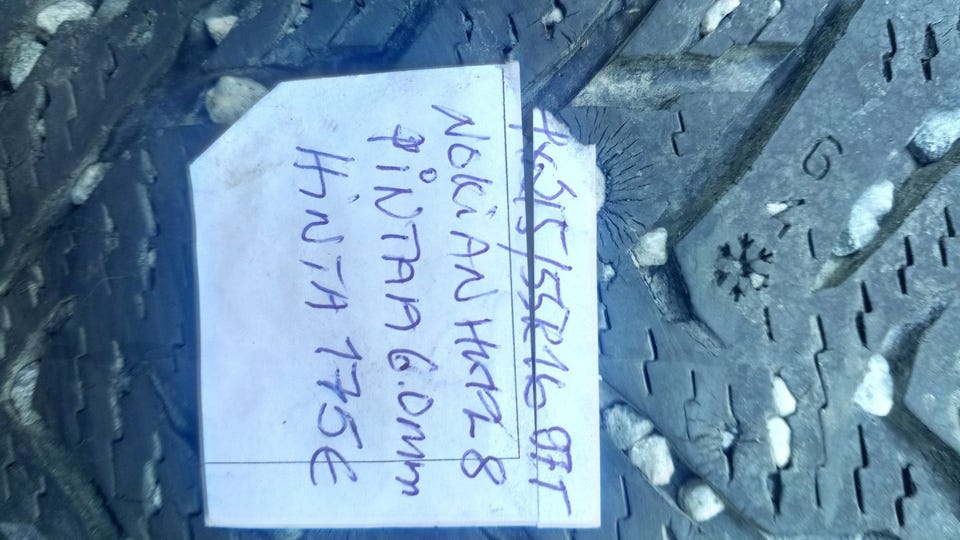 4x215/55R16 97T
NOKiAN 8
PiNTAA 6.0mm
HiNTA 175€
6